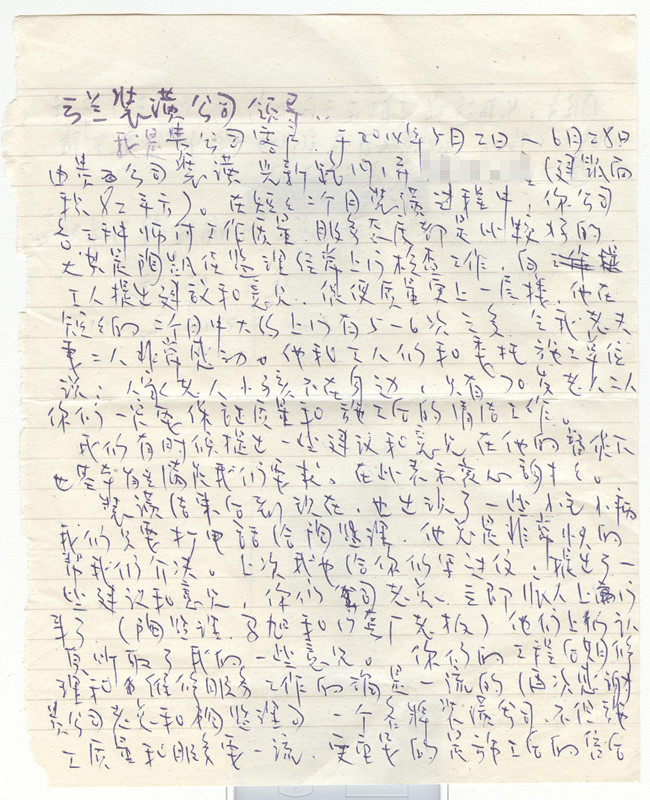 云兰装潢公司领导：
我是贵公司客户，于2014年5月2日一6月28日
由贵公司装潢 弄 （建筑面
积82平方）。在短短二个月装潢过程中，你公司
各工种师付工作质量，服务态度都是比较好的
尤其是陶凯任监理经常上门检查工作，向
工人提出建议和意见，保使质量更上一层楼，他在
短短的二个月中大约上门有5-6次之多，令我老夫
妻二人非常感动。他和工人们和委托施工单位
说：人家老人小孩不在身边，只有70岁老人二人
你们一定要保证质量和施工后的清洁工作。
我们有时候提出一些建议和意见在他的
也基本 满足我们要求，在此表示衷心谢谢。
装潢结束后到现在，也出现了一些小毛小病
我们只要打电话给陶监理，他总是非常快的
帮我们介决。上次我也给你们写过信，提出了一
些建议和意见，你们公司老总，立即派人上门
来了（陶监理. 和 厂老板）他们上门认
真听取了我的一些意见。 你们的工程后期修
理和维修服务工作的确是一流的（再次感谢
贵公司老总和陶监理） 一个名牌装潢公司，不但施
工质量和服务要一流，更重要的是施工后的信合